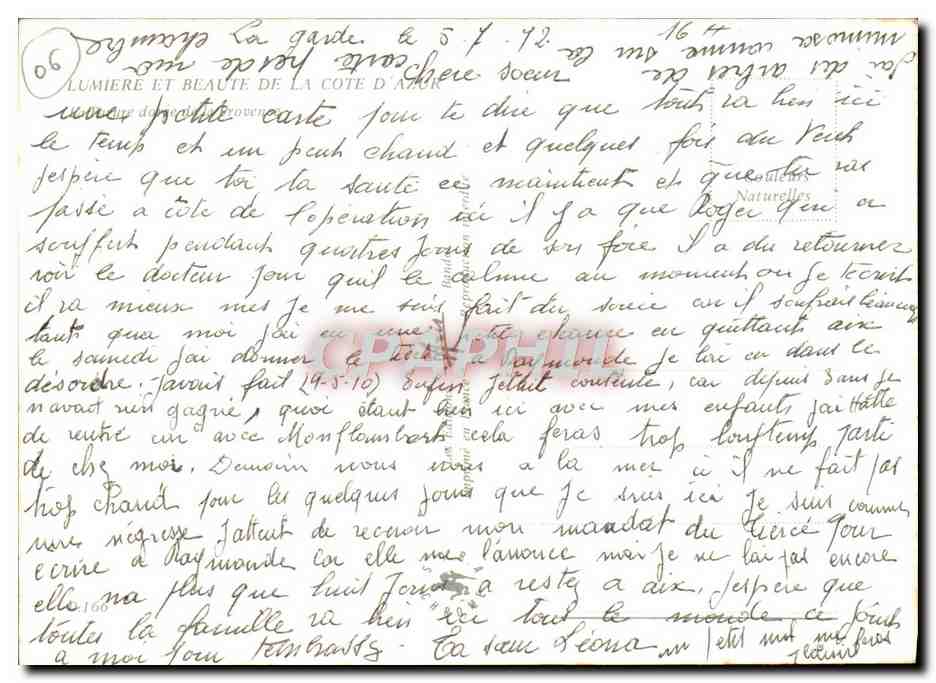 06
La garde le 5.7.72 16 H
j'ai des arbres de
mimosa comme sur la
carte près de ma
chambre
Chère soeur
LUMIERE ET BEAUTE DE LA COTE D'AZUR
une petite carte pour te dire que tout va bien ici
le temp et un peut chaud et quelques fois du Vent
j'espère que toi ta santé ce maintient et que ta vas
Couleurs
Naturelles
passé a côte de l'opération ici il y a que Roger qui a
souffert pendant quatres jours de son foie il a du retourner
voir le docteur pour quil le calme au moment ou je t'ecrit
il va mieux mes je me suis fait du soucie car il soufrais beaucoup
tant qua moi j'ai eu une petite chance en quittant aix
le samedi j'ai donner le tiercé a Raymonde je lai eu dans le
désordre. javais fait (19-5-10) enfin j'était contente, car depuis 3 ans je
navait rien gagné, quoi étant bien ici avec mes enfants j'ai Hâte
de rentré car avec Monflambert cela feras trop longtemp parti
de chez moi. Demain nous irons a la mer ci il ne fait pas
trop chaud pour les quelques jours que je suis ici je suis comme
une négresse j'attent de recevoir mon mandat du tiercé pour
ecrire a Raymonde car elle me l'anonce mais je ne lai pas encore
elle na plus que huit jours a restez a aix. j'espère que
166
toutes la famille va bien ici tout le monde ce joint
a moi pour t'embrasse. Ta sœur Léona un petit mot me feras
plaisir
CPAPHIL
Reproduction interdite
Imprimé en